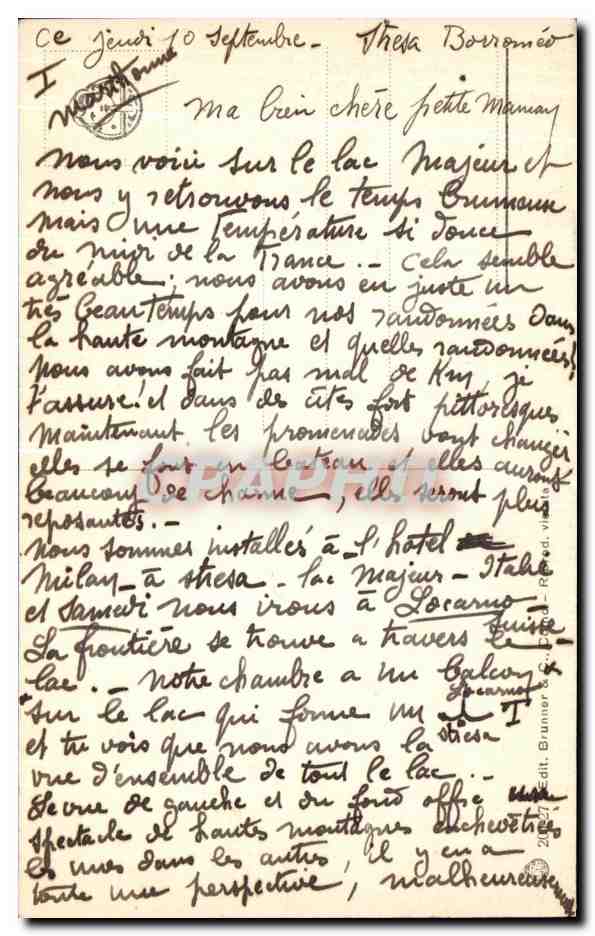 Ce jeudi 10 septembre - Stresa Borroméo
I
Ma bien chère petite Maman
Nous voici sur le lac Majeur et
nous y retrouvons le temps brumeux
mais une Température si douce
du midi de la France. - Cela semble
agréable ; nous avons eu juste un
très beau temps pour nos randonnées dans
la haute montagne et quelles randonnées!
Nous avons fait pas mal de Km, je
t'assure! et dans des sites fort pittoresques
Maintenant les promenades vont changer
elles se font en bateau et elles auront
beaucoup de charme, elles seront plus
reposantes. -
Nous sommes installés à l'hôtel
Milan - à Stresa - lac Majeur - Italie
et Samedi nous irons à Locarno -
Suisse -
La frontière se trouve à travers le
lac. - Notre chambre a un balcon
sur le lac qui forme un
Locarno
I
Stresa
et tu vois que nous avons la
vue d'ensemble de tout le lac. -
La vue de gauche et du fond offre
spectacle de hautes montagnes enchevêtrées
les unes dans les autres, il y en a
toute une perspective, malheureusement
CPAPHIL
Edit. Brunner & C. Como - Reprod. vietata